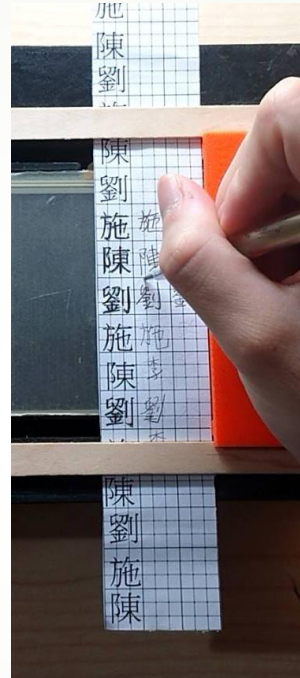 施陳劉陳劉施陳劉施陳劉陳劉施陳
施陳劉施李劉